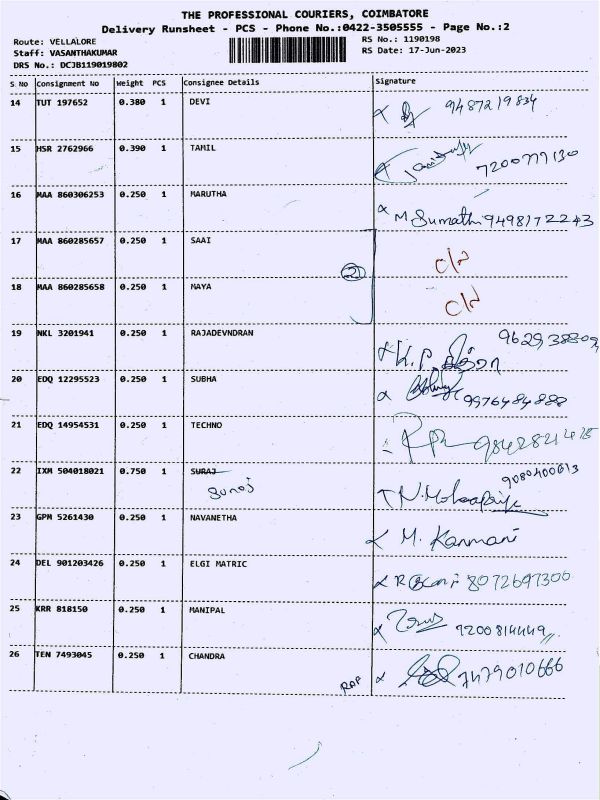 THE PROFESSIONAL COURIERS, COIMBATORE
Delivery Runsheet - PCS - Phone No.:0422-3505555 - Page No.:2
Route: VELLALORE
Staff: VASANTHAKUMAR
DRS No.: DCJB119019802
RS No.: 1190198
RS Date: 17-Jun-2023
S No Consignment No Weight PCS Consignee Details Signature
14 TUT 197652 0.380 1 DEVI 9487219834
15 HSR 2762966 0.390 1 TAMIL 7200777130
16 MAA 860306253 0.250 1 MARUTHA M Sumathi 9498172243
17 MAA 860285657 0.250 1 SAAI C/N
21
18 MAA 860285658 0.250 1 MAYA C/N
19 NKL 3201941 0.250 1 RAJADEVNDRAN K.P 9629388092
20 EDQ 12295523 0.250 1 SUBHA 9976484888
21 EDQ 14954531 0.250 1 TECHNO 9842821475
22 IXM 504018021 0.750 1 SURAJ 9080400613
Suraj
23 GPM 5261430 0.250 1 NAVANETHA M. Kanmani
24 DEL 901203426 0.250 1 ELGI MATRIC 8072697300
25 KRR 818150 0.250 1 MANIPAL 9200814449
26 TEN 7493045 0.250 1 CHANDRA 7479010666